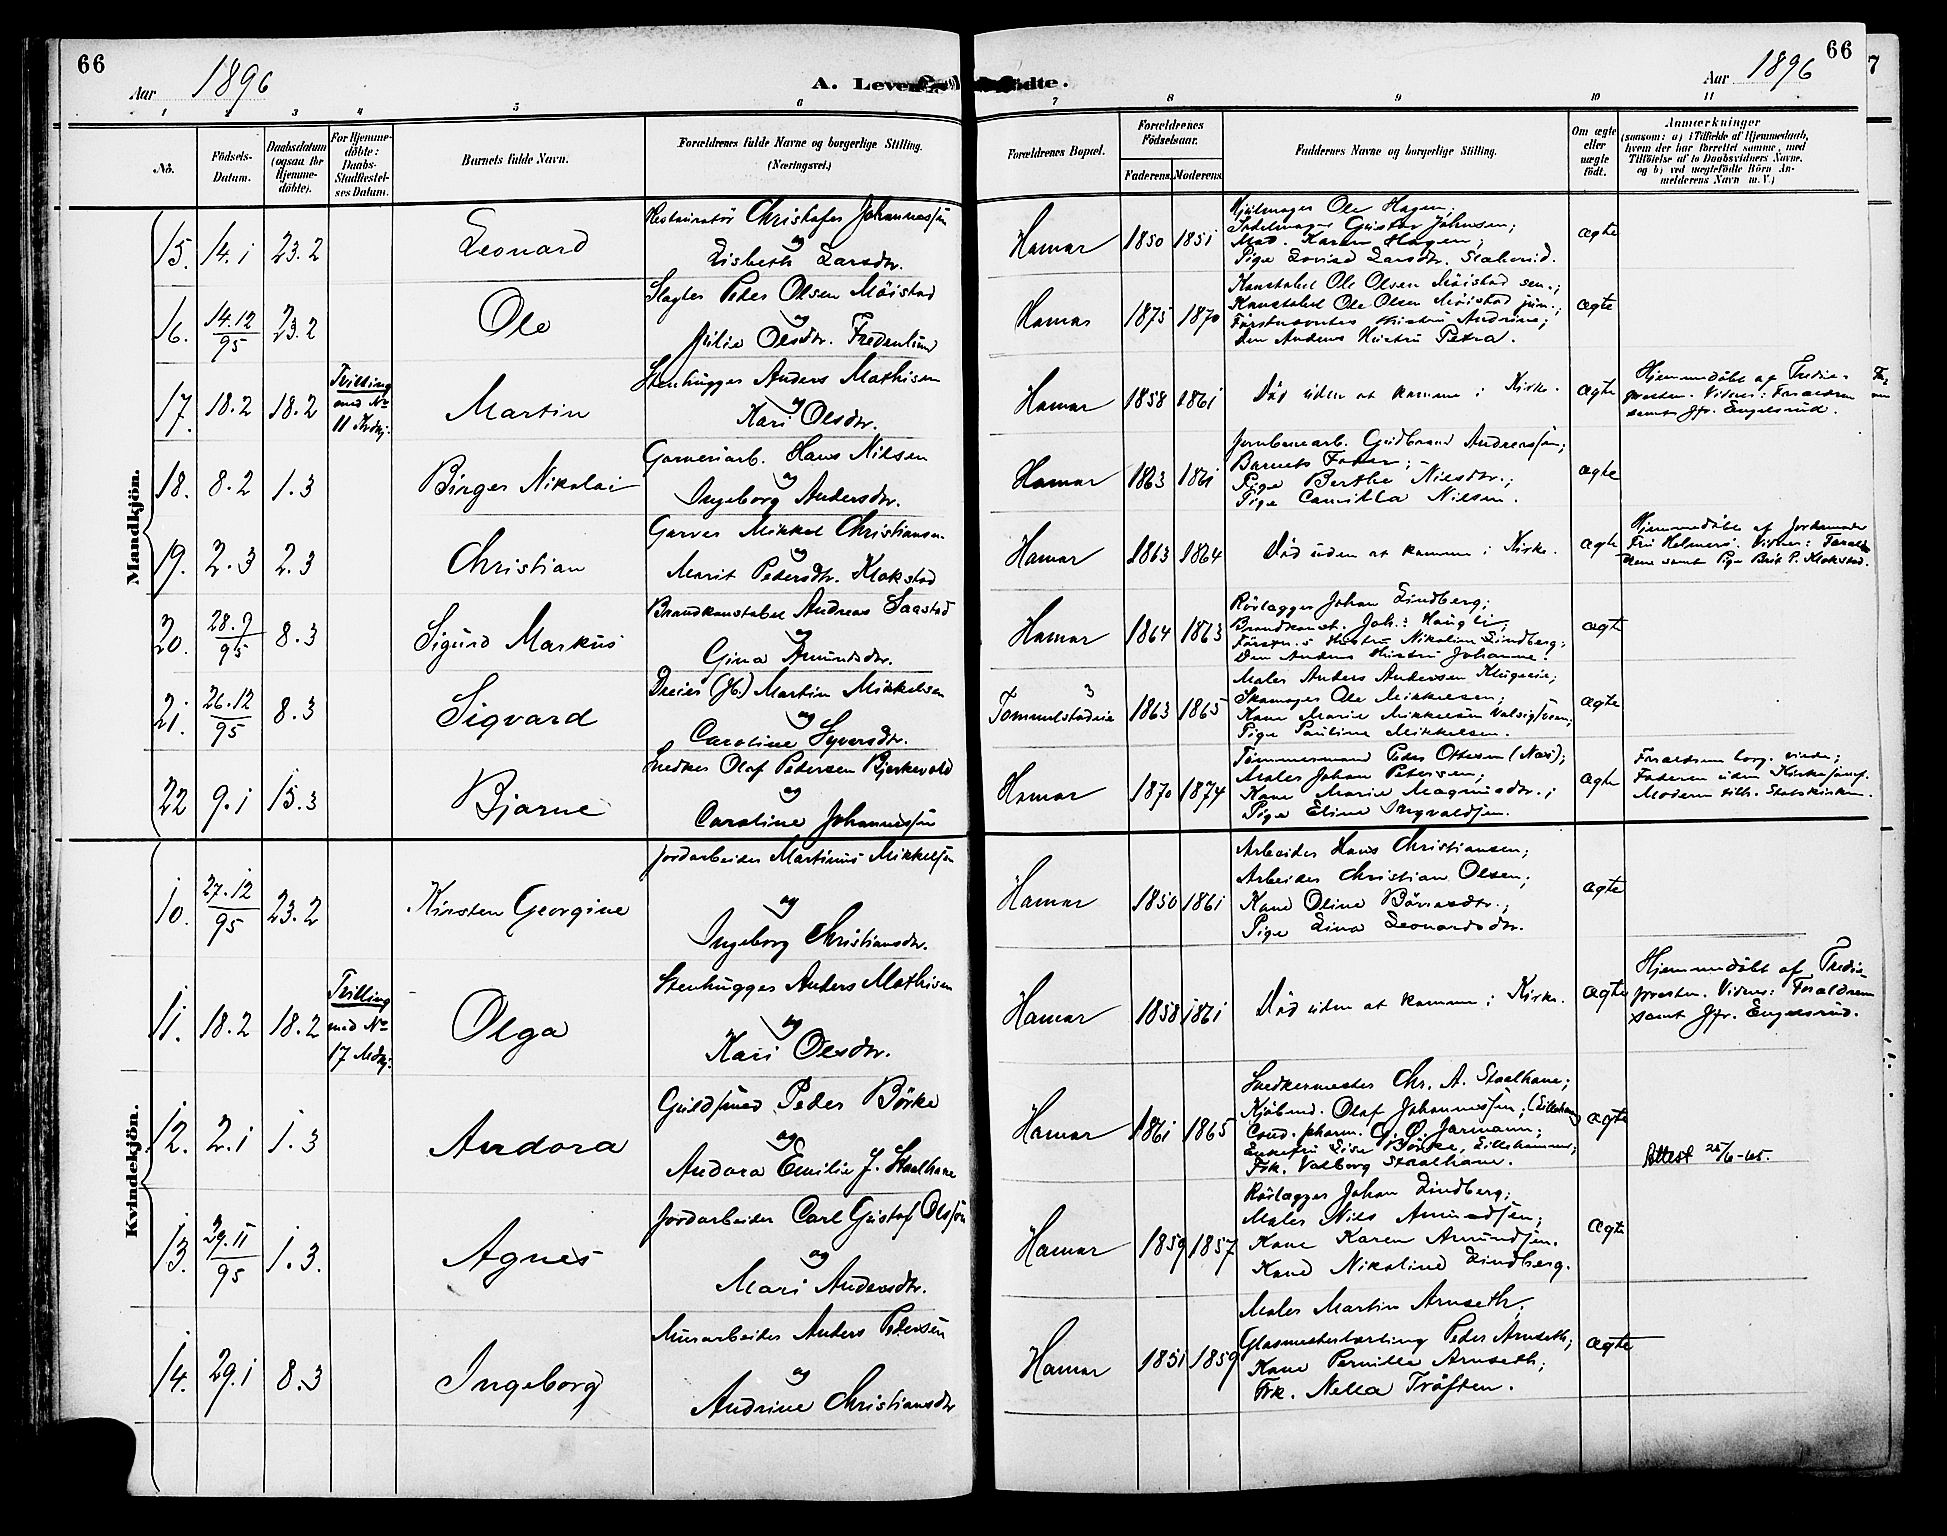 66
Aar 1896
A. Levende
fødte.
66
Aar 1896
7
1 2 3 4 5 6 7 8 9 10 11
No.
Fødsels-Datum.
Daabsdatum (ogsaa for Hjemme-døbte).
For Hjemme-døbte: Daabs-Stadfæstel-ses Datum.
Barnets fulde Navn.
Forældrenes fulde Navne og borgerlige Stilling.
(Næringsvei.)
Forældrenes Bopæl.
Forældrenes Fødselsaar.
Faderens. Moderens.
Faddernes Navne og borgerlige Stilling.
Om ægte eller uægte født.
Anmærkninger
(saasom: a) i Tilfælde af Hjemmedaab, hvem der har forrettet samme, med Tilføielse af to Daabsvidners Navne, og b) ved uægtefødte Børn Anmelderens Navn m. V.)
Mandkjön.
15. 14.1 23.2 Leonard
Restauratør Christofer Johannessen
og
Lisbeth Larsdtr.
Hamar 1850 1851
Hjulmager Ole Hagen;
Sadelmager Gustav Johnsen;
Mad. Karen Hagen;
Pige Lovise Larsdtr.
ægte
16. 14.12/95 23.2 Ole
Slagter Peder Olsen Möistad
og
Julie Olsdtr. Fredenlund
Hamar 1875 1870
Konstabel Ole Olsen Möistad sen.;
Konstabel Ole Olsen Möistad jun.;
Förstnevntes Hustru Andrine;
Den Andens Hustru Petra.
ægte
17. 18.2 18.2
Tvilling
med No
11 Kvdkj.
Martin
Stenhugger Anders Mathisen
og
Kari Olsdtr.
Hamar 1858 1861
Död uden at komme i Kirke.
ægte
Hjemmedöbt af Tredie-
presten. Vidner: Foraldren
samt Jfr. Engelsrud.
18. 8.2 1.3 Birger Nikolai
Garveriarb. Hans Nilsen
og
Ingeborg Andersdtr.
Hamar 1863 1861
Jernbanearb. Gudbrand Andreassen;
Barnets Fader;
Pige Berthe Nilsdtr.;
Pige Camilla Nilsen.
ægte
19. 2.3 2.3 Christian
Garver Mikkel Christiansen
og
Marit Pedersdtr. Klokstad
Hamar 1863 1864
Död uden at komme i Kirke.
ægte
Hjemmedöbt af Jordemoder
Fru Helmers. Vidner: Forald-
rene samt Pige Brit P. Klokstad.
20. 28.9/95 8.3 Sigurd Markus
Brandkonstabel Andreas Saastad
og
Gina Amundsdtr.
Hamar 1864 1863
Rörlægger Johan Lindberg;
Brandkonst. Joh: Haugli;
Förstn.s Hustru Nikoline Lindberg;
Den Andens Hustru Johanne.
ægte
21. 26.12/95 8.3 Sigvard
Dreier (H.) Martin Mikkelsen
og
Caroline Syversdtr.
Tommelstadeie 3 1863 1865
Maler Anders Andersen
Skomager Ole Mikkelsen;
Kone Marie Mikkelsen
Pige Pauline Mikkelsen.
ægte
22 9.1 15.3 Bjarne
Snedker Olaf Pedersen Bjerkevold
og
Caroline Johannessen
Hamar 1870 1874
Tömmermand Peder Ottesen (Næs);
Maler Johan Petersen;
Kone Marie Magnusdtr.;
Pige Eline Ingvaldsen.
ægte
Foraldrene borg. viede;
Faderen uden Kirkesamf.
Moderen tilh. Statskirken.
Kvindekjön.
10. 27.12/95 23.2 Kirsten Georgine
Jordarbeider Martinus Mikkelsen
og
Ingeborg Christiansdtr.
Hamar 1850 1861
Arbeider Hans Christiansen;
Arbeider Christian Olsen;
Kone Oline Börresdtr.;
Pige Lina Leonardsdtr.
ægte
11. 18.2 18.2
Tvilling
med No
17 Mdkj.
Olga
Stenhugger Anders Mathisen
og
Kari Olsdtr.
Hamar 1858 1861
Död uden at komme i Kirke.
ægte
Hjemmedöbt af Tredie-
presten. Vidner: Foraldrene
samt Jfr. Engelsrud.
12. 2.1 1.3 Andora
Guldsmed Peder Börke
og
Andora Emilie J. Staalhane
Hamar 1861 1865
Snedkermester Chr. A. Staalhane;
Kjöbmd. Olaf Johannessen; (Lilleham.)
Cand. pharm. G. O. Jarmann;
Enkefru Lise Börke, Lillehammer;
Frk. Valborg Staalhane.
ægte
Attest 25/6-65.
13. 29.11/95 1.3. Agnes
Jordarbeider Carl Gustaf Olsson
og
Mari Andersdtr.
Hamar 1859 1857
Rörlægger Johan Lindberg;
Maler Nils Amundsen;
Kone Karen Amundsen.
Kone Nikoline Lindberg.
ægte
14. 29.1 8.3 Ingeborg
Murarbeider Anders Pedersen
og
Andrine Christiansdtr
Hamar 1851 1859
Maler Martin Arnseth;
Glasmesterlærling Peder Arnseth;
Kone Pernille Arnseth;
Frk. Nella Tröften.
ægte